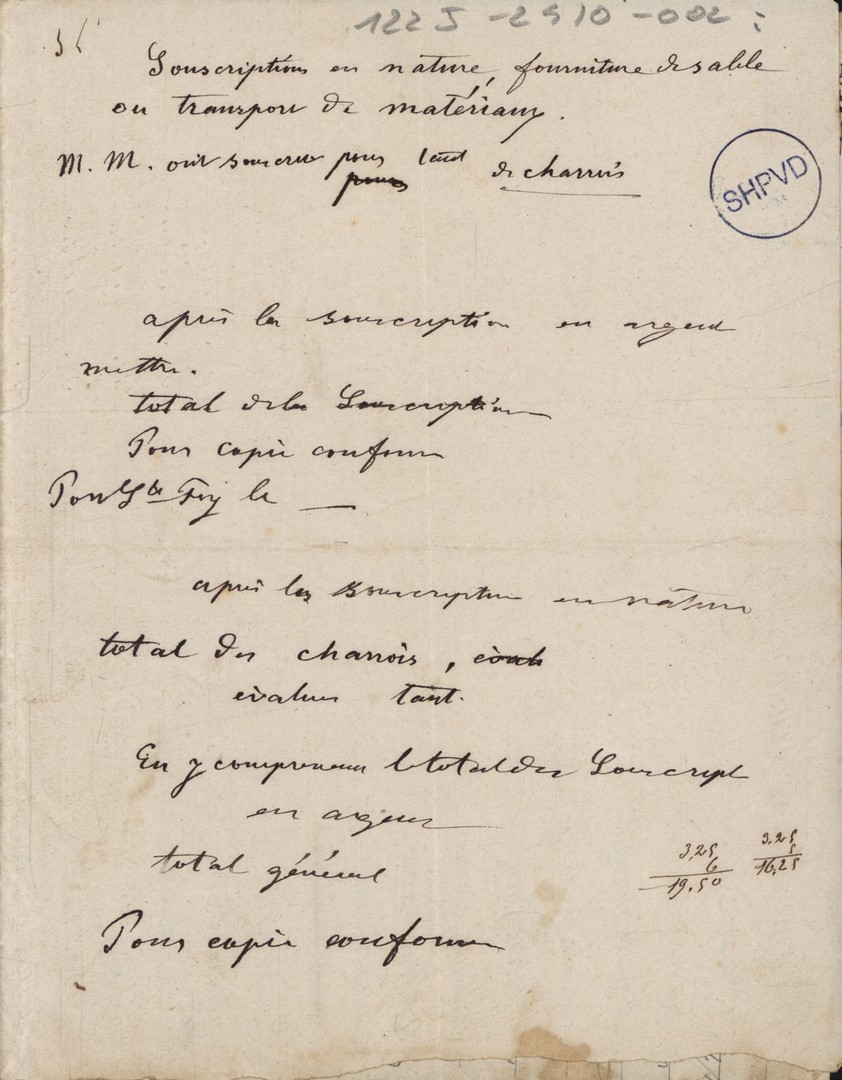 122 J - 2510 - 002 :
Souscriptions en nature, fourniture de sable
ou transport de matériaux.
M. M. ont souscrit pour tant de charrois
pour
SHPVD
après la souscription en argent
mettre.
total de la Souscription
Pour copie conforme
Port Ste Foy le —
après les souscriptions en nature
total des charrois, éval
évalués tant.
En y comprenant le total des Souscript
en argent
total général
3,25 3,25
6 5
19,50 16,25
Pour copie conforme